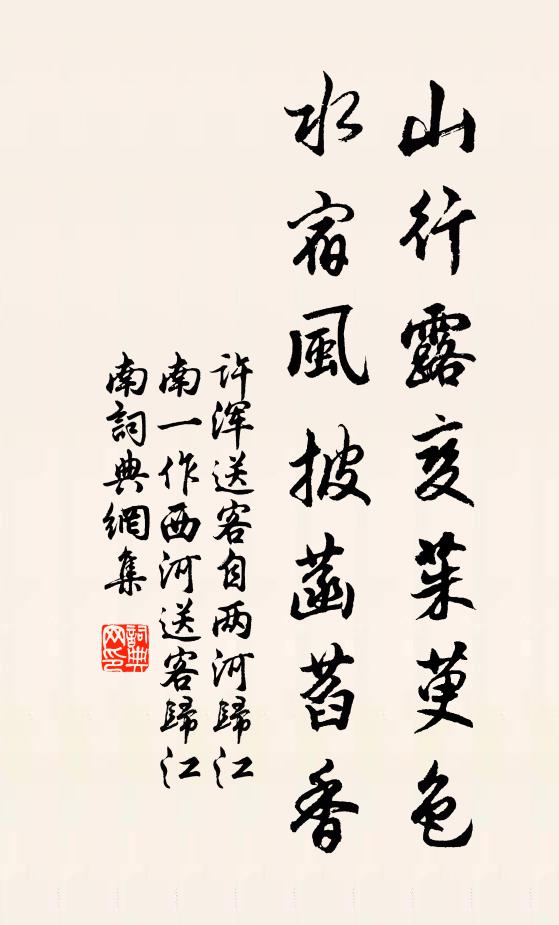 山行露变茱萸色
水宿風披菡萏香
许浑送客自两河歸江
南一作西河送客歸江
南詞典網集
詞典
网印